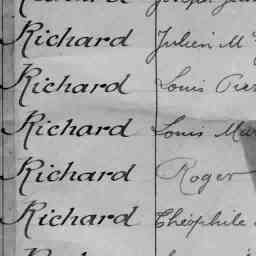 Richard Julien M
Richard Louis
Richard Louis
Richard Roger
Richard Théophile